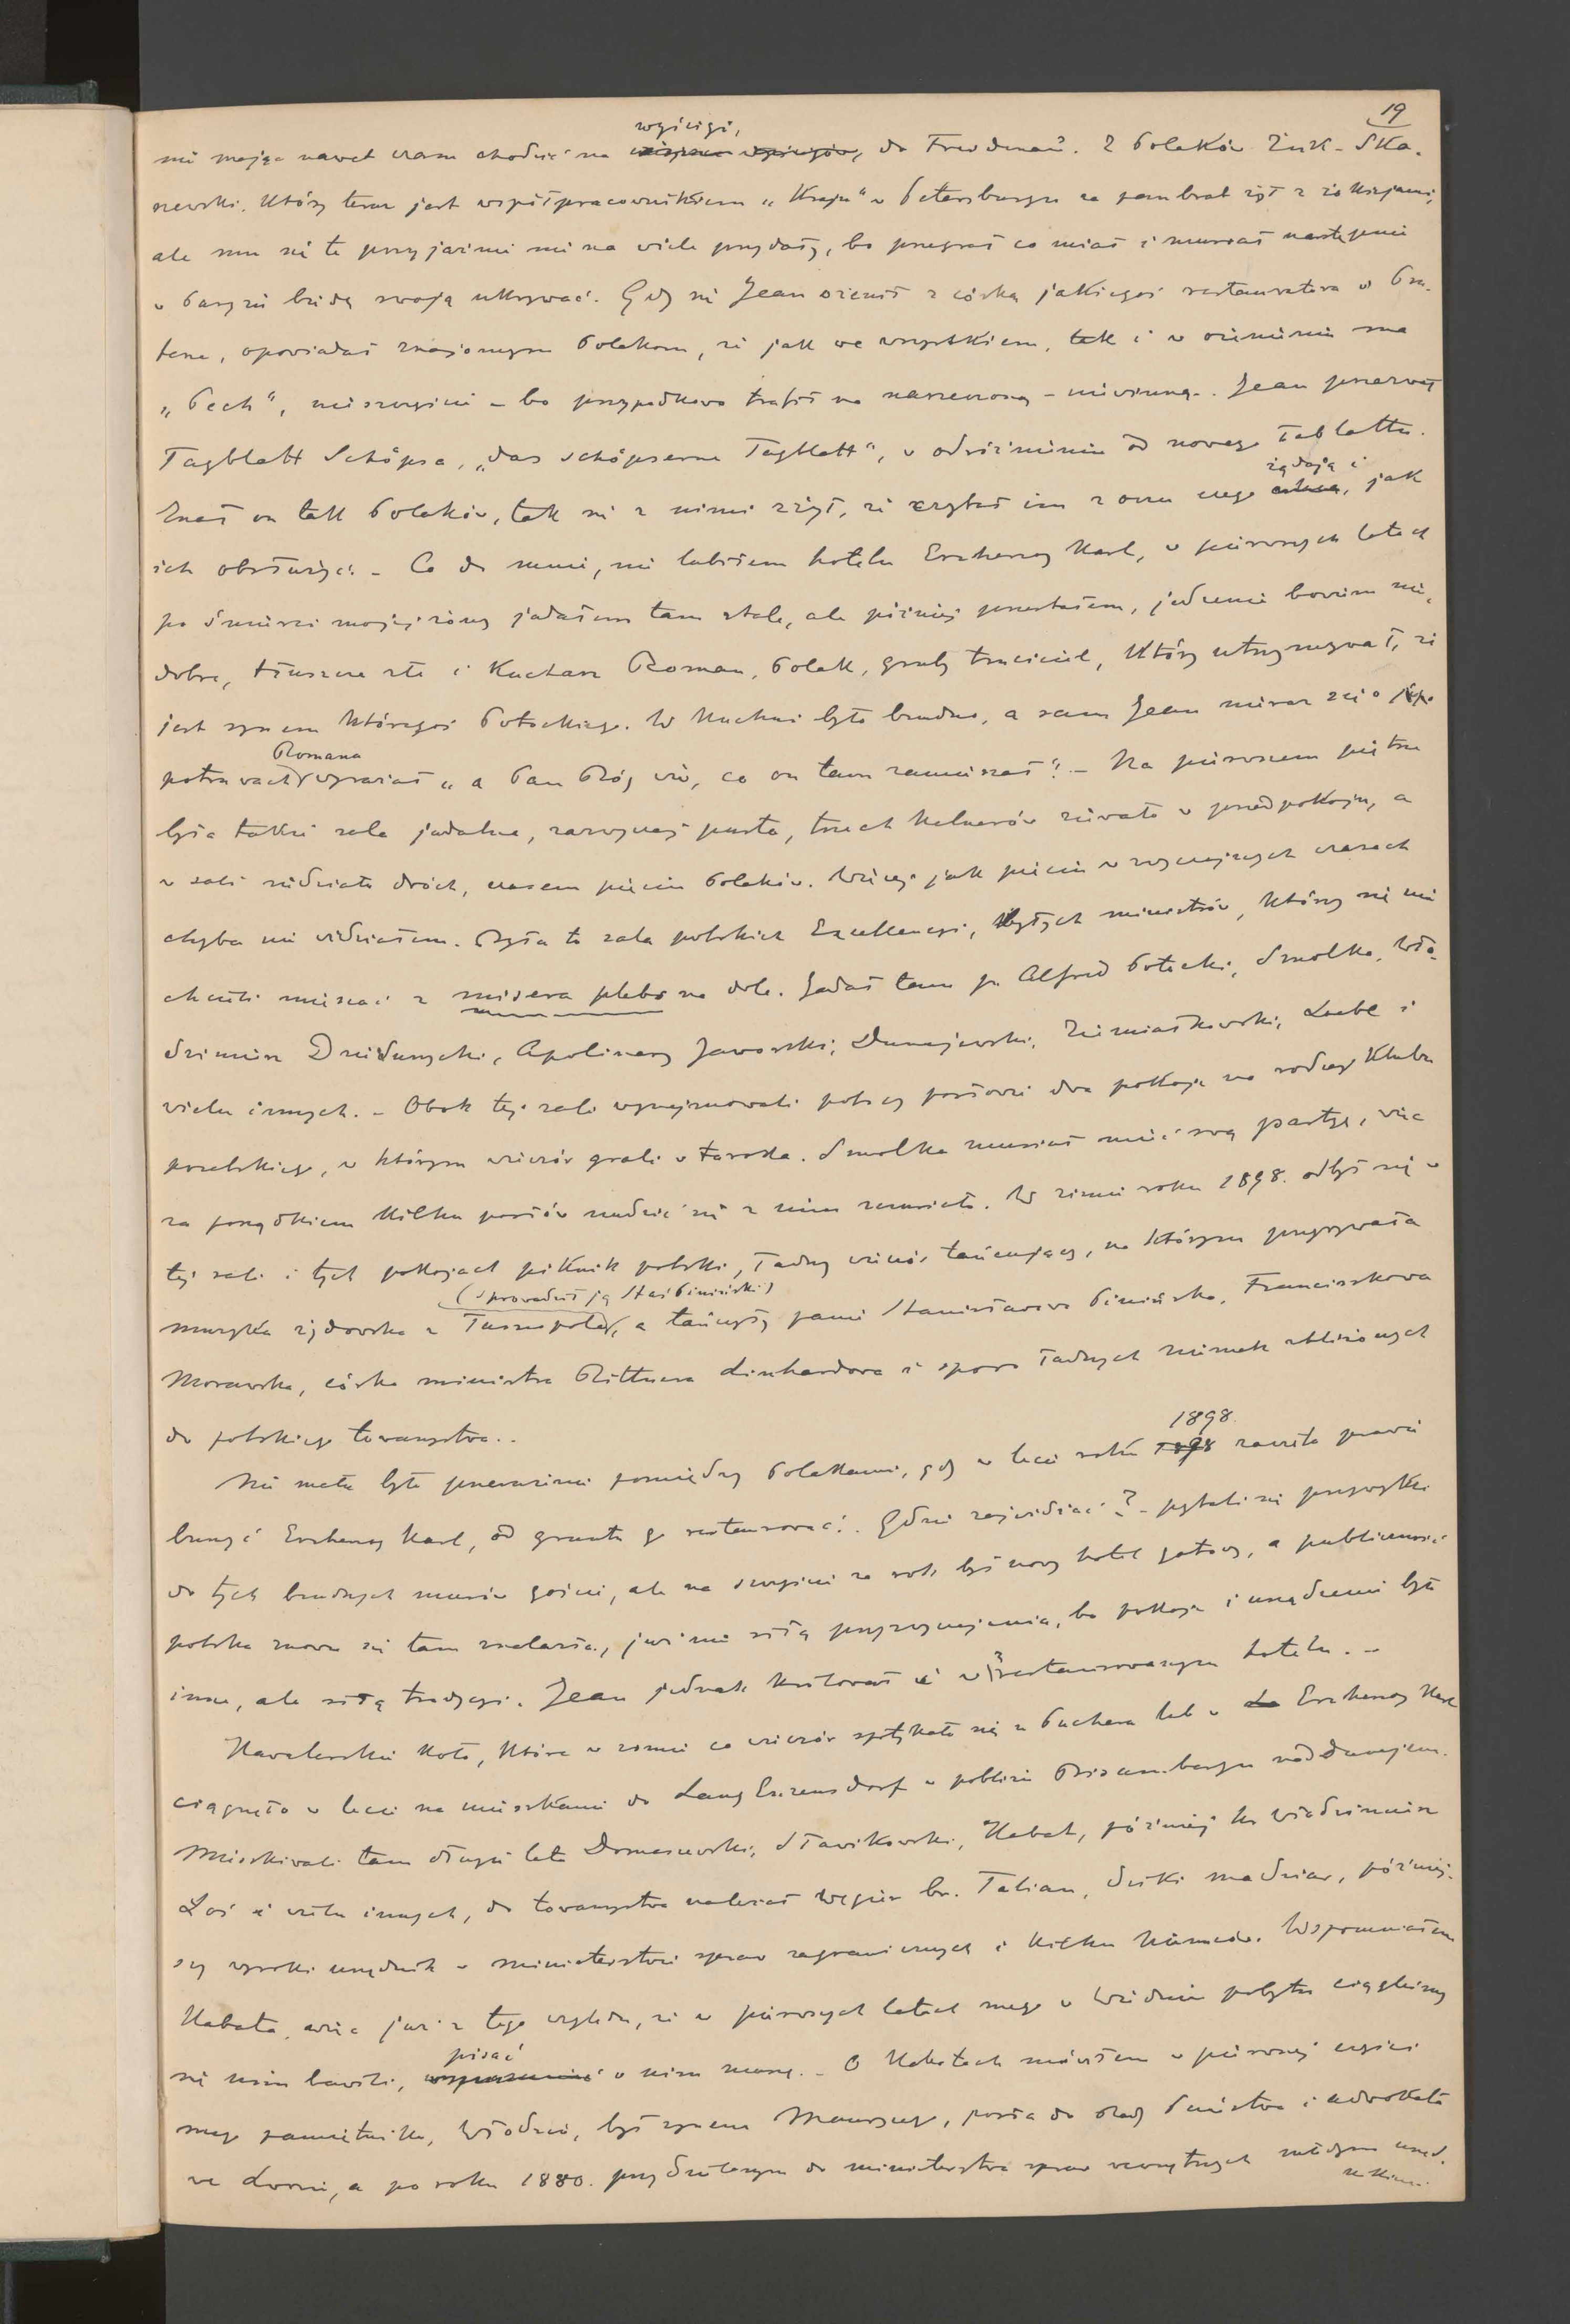 19
wyścigi,
nie mając nawet czasu chodzić na do Freudenau. Z Polaków Żuk-Ska-
szewski, który teraz jest współpracownikiem „Kraju" w Petersburgu za pan brat żył z żokiejami,
ale mu się te przyjaźnie nie na wiele przydały, bo przegrał co miał i musiał następnie
w Paryżu biedę swoją ukrywać. Gdy się Jean ożenił z córką jakiegoś restauratora w Pra-
terze, opowiadał znajomym Polakom, że jak we wszystkiem, tak i w ożenieniu ma
„Pech", nieszczęście – bo przypadkowo trafił na narzeczoną – niewinną. Jean przezwał
Tagblatt Schöpsa, „das schöpserne Tagblatt", w odróżnieniu od nowego Tablattu.
żądają i
Znał on tak Polaków, tak się z nimi zżył, że czytał im z oczu czego jak
ich obsłużyć. – Co do mnie, nie lubiłem hotelu Erzherzog Karl, w pierwszych latach
po śmierci mojej żony jadałem tam stale, ale później przestałem, jedzenie bowiem nie-
dobre, tłuszcze złe i kucharz Roman, Polak, gruby truciciel, który utrzymywał, że
jest synem któregoś Potockiego. W kuchni było brudno, a sam Jean nieraz się o jego
Romana
potrawach wyrażał „a Pan Bóg wie, co on tam zamieszał". – Na pierwszem piętrze
była także sala jadalna, zazwyczaj pusta, trzech kelnerów ziewało w przedpokoju, a
w sali siedziało dwóch, czasem pięciu Polaków. Więcej jak pięciu w zwyczajnych czasach
chyba nie widziałem. Była to sala polskich Excellencyi, byłych ministrów, którzy się nie
chcieli mieszać z misera plebs na dole. Jadał tam p. Alfred Potocki, Smolka, Wło-
dzimierz Dzieduszycki, Apolinary Jaworski, Dunajewski, Ziemiałkowski, Loebl i
wielu innych. – Obok tej sali wynajmowali polscy posłowie dwa pokoje na rodzaj klubu
poselskiego, w którym wieczór grali w taroka. Smolka musiał mieć swą partyę, więc
za porządkiem kilku posłów nudzić się z nim musiało. W zimie roku 1898. odbył się w
tej sali i tych pokojach piknik polski, ładny wieczór tańcujący, na którym przygrywała
(sprowadził ją Staś Piniński)
muzyka żydowska z Tarnopola, a tańczyły panie Stanisławowa Pinińska, Franciszkowa
Morawska, córka ministra Rittnera Linhardowa i sporo ładnych Niemek zbliżonych
do polskiego towarzystwa..
1898.
Nie mało było przerażenie pomiędzy Polakami, gdy w lecie roku 1898 zaczęto prawie
burzyć Erzherzog Karl, od gruntu go restaurować. Gdzie zajeżdżać? – pytali się przywykli
do tych brudnych murów goście, ale na szczęście za rok był nowy hotel gotowy, a publiczność
polska znowu się tam znalazła, już nie siłą przyzwyczajenia, bo pokoje i urządzenie było
inne, ale siłą tradycyi. Jean jednak królował i w restaurowanym hotelu. –
Kawalerskie koło, które w zimie co wieczór spotykało się u Puchera lub w Erzherzog Karl
ciągnęło w lecie na mieszkanie do Lang Enzersdorf w pobliżu Bisambergu nad Dunajem.
Mieszkiwali tam długie lata Domaszewski, Sławikowski, Kabat, później hr. Włodzimierz
Łoś i wielu innych, do towarzystwa należał Węgier br. Talian, dziki madziar, później-
szy wysoki urzędnik w ministerstwie spraw zagranicznych i kilku Niemców. Wspomniałem
Kabata, więc już z tego względu, że w pierwszych latach mego w Wiedniu pobytu ciągleśmy
pisać
się nim bawili, o nim muszę. – O Kabatach mówiłem w pierwszej części
mego pamiętnika, Włodzio, był synem Maurycego, posła do Rady Państwa i adwokata
we Lwowie, a po roku 1880. przydzielonym do ministerstwa spraw wewnętrznych młodym urzęd-
nikiem.